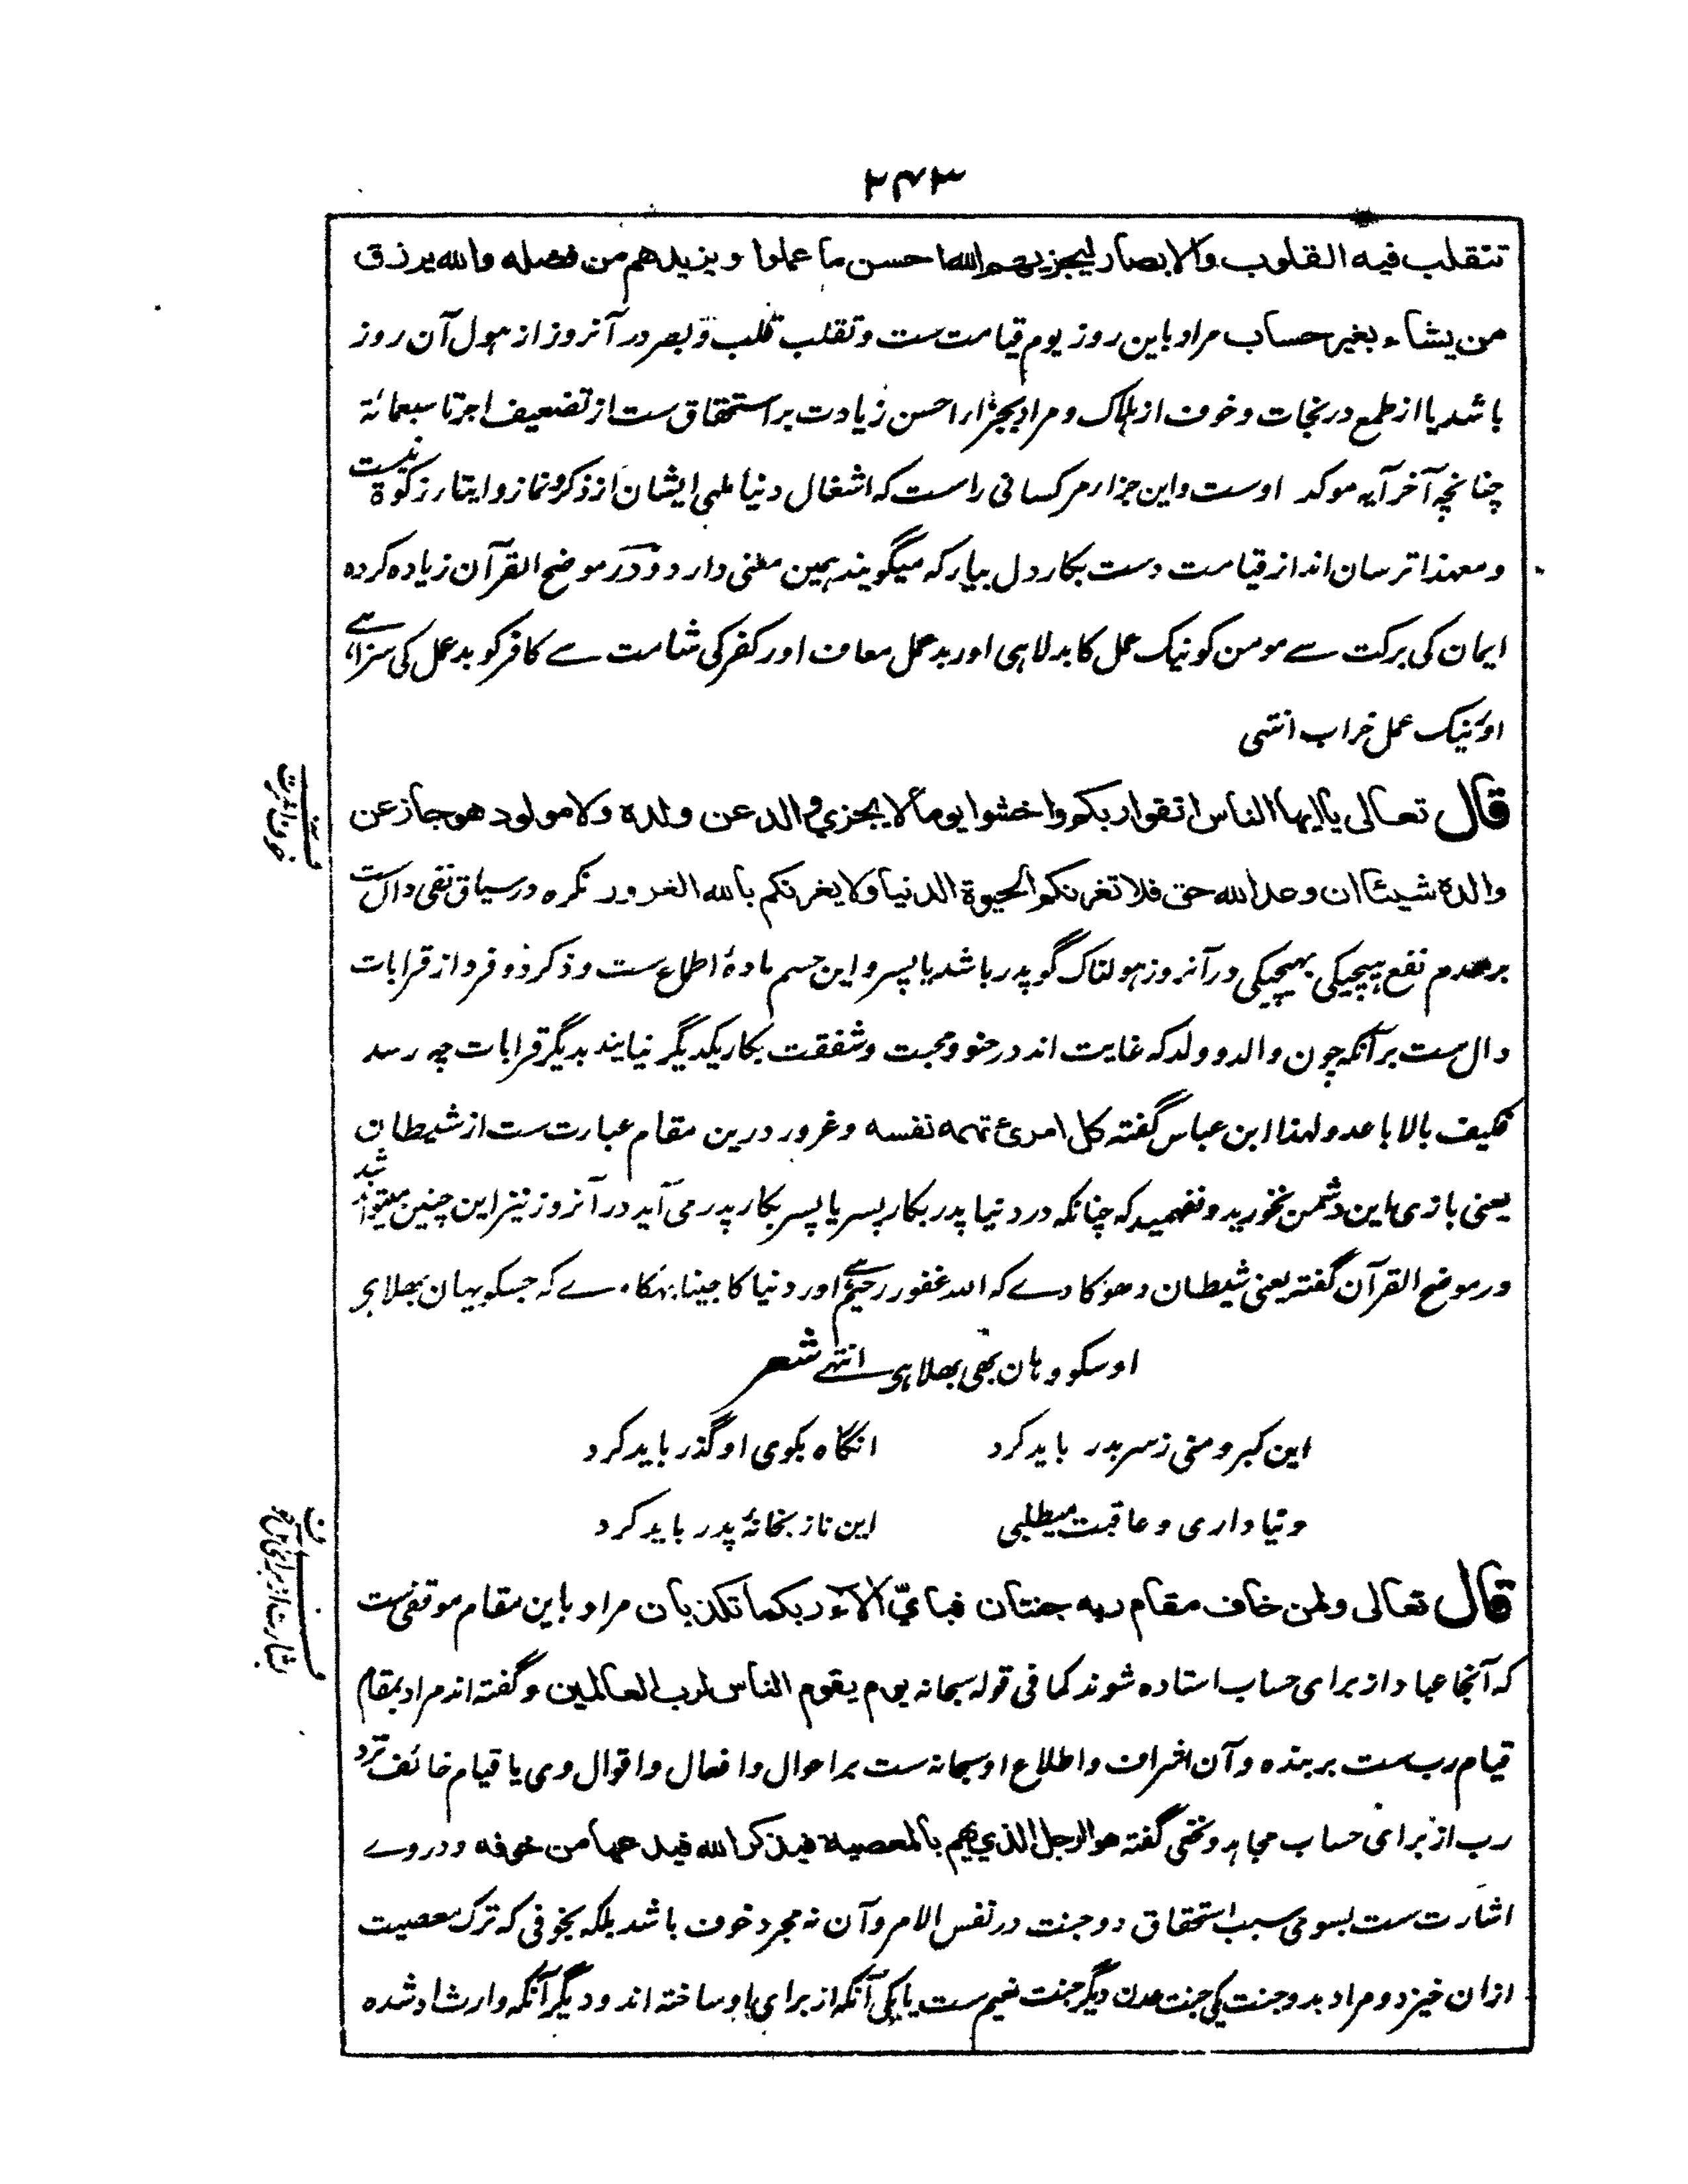 ۲۴۳
تتقلب فيه القلوب والابصار ليجزيهم الله احسن ما عملوا ويزيدهم من فضله والله يرزق
من يشاء بغير حساب مراد باین روز یوم قیامت ست وتقلب قلب و بصر در آنروز از هول آن روز
باشد یا از طمع در نجات و خوف از هلاک و مراد بجزاء احسن زیادت بر استحقاق ست از تضعیف اجر تا سبعمائة
چنانچه آخر آیه موکد اوست و این جزا مر کسانی راست که اشغال دنیا ملهی ایشان از ذکر و نماز و ایتاء زکوة نیست
و معهذا ترسان اند از قیامت دست بکار دل بیار که میگویند همین معنی دارد و در موضح القرآن زیاده کرده
ایمان کی برکت سے مومن کو نیک عمل کا بدلا ہی اور بد عمل معاف اور کفر کی شامت سے کافر کو بد عمل کی سزا ہے
اور نیک عمل خراب انتهی
قال تعالى يا ايها الناس اتقوا ربكم واخشوا يوما لا يجزي والد عن ولده ولا مولود هو جاز عن
والده شيئا ان وعد الله حق فلا تغرنكم الحيوة الدنيا ولا يغرنكم بالله الغرور نکره در سیاق نفی دال ست
بر عدم نفع هیچیکی بهیچیکی در آنروز هولناک گو پدر باشد یا پسر و این حسم ماده اطماع ست و ذکر دو فرد از قرابات
دال ست بر آنکه چون والد و ولد که غایت اند در حنو و محبت و شفقت بکار یکدیگر نیایند بدیگر قرابات چه رسد
فکیف بالاباعد ولهذا ابن عباس گفته كل امرئ تهمه نفسه و غرور درین مقام عبارت ست از شیطان
یعنی بازی این دشمن نخورید و نفهمید که چنانکه در دنیا پدر بکار پسر یا پسر بکار پدر می آید در آنروز نیز این چنین میتواند شد
در موضح القرآن گفته یعنی شیطان دھوکا دے کہ اللہ غفور رحیم ہے اور دنیا کا جینا بہکاوے کہ جسکو یہان بھلا ہی
اوسکو وہان بھی بھلا ہی انتہے شعر
این کبر و منی ز سر بدر باید کرد انگاه بکوی او گذر باید کرد
دنیا داری و عاقبت میطلبی این ناز بخانهٔ پدر باید کرد
قال تعالى ولمن خاف مقام ربه جنتان فباي الاء ربكما تكذبان مراد باین مقام موقفی ست
که آنجا عباد از برای حساب استاده شوند کما فی قوله سبحانه يوم يقوم الناس لرب العالمين و گفته اند مراد بمقام
قیام رب ست بر بنده و آن اشراف و اطلاع او سبحانه ست بر احوال و افعال و اقوال وی یا قیام خائف نزد
رب از برای حساب مجاهد و نخعی گفته هو الرجل الذي يهم بالمعصية فيذكر الله فيدعها من خوفه و در وے
اشارت ست بسوی سبب استحقاق دو جنت در نفس الامر و آن نه مجرد خوف باشد بلکه بخوفی که ترک معصیت
ازان خیزد و مراد بدو جنت یکی جنت عدن دیگر جنت نعیم ست یا یکی آنکه از برای او ساخته اند و دیگر آنکه وارث او شده